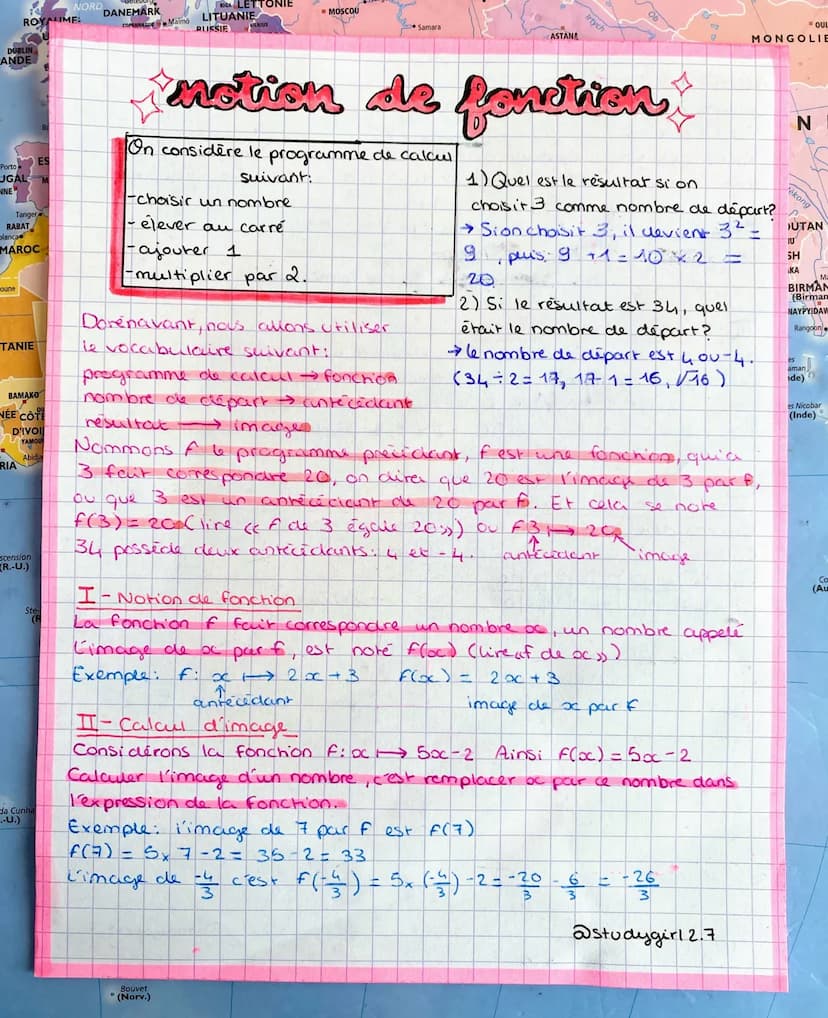 NORD
DANEMARK
LETTONIE
LITUANIE
RUSSIE
MOSCOU
Malmö
Samara
ASTANA
MONGOLIE
DUBLIN
Porto
Tanger
RABAT
MAROC
BAMAKO
notion de fonction
On considère le programme de calcul
suivant:
-choisir un nombre
- élever au carré
-ajouter 1
-multiplier par 2.
1) Quel est le résultat si on
choisit 3 comme nombre de départ?
→ Si on choisit 3, il devient 3² =
9, puis 9 +1 = 10 × 2 =
20.
2) Si le résultat est 34, quel
était le nombre de départ?
→ le nombre de départ est 4 ou -4.
(34 ÷ 2 = 17, 17-1 = 16, √16)
Dorénavant, nous allons utiliser
le vocabulaire suivant:
programme de calcul → fonction
nombre de départ → antécédant
résultat → image
Nommons f le programme précédant, f est une fonction, qui a
3 fait correspondre 20, on dira que 20 est l'image de 3 par f,
ou que 3 est un antécédant de 20 par f. Et cela se note
f(3) = 20 (lire « f de 3 égale 20 ») ou f3 ↦ 20
34 possède deux antécédants: 4 et -4. antécédant image
I - Notion de fonction
La fonction f fait correspondre un nombre x, un nombre appelé
l'image de x par f, est noté f(x) (lire « f de x »)
Exemple: f: x ↦ 2x+3 f(x) = 2x+3
antécédant image de x par f
II - Calcul d'image
Considérons la fonction f: x ↦ 5x-2 Ainsi f(x) = 5x-2
Calculer l'image d'un nombre, c'est remplacer x par ce nombre dans
l'expression de la fonction.
Exemple: l'image de 7 par f est f(7)
f(7) = 5 × 7 - 2 = 35 - 2 = 33
L'image de -4/3 c'est f(-4/3) = 5 × (-4/3) - 2 = -20/3 - 6/3 = -26/3
@studygirl2.7
N
OUTAN
BIRMAN
(Birman
NAYPYIDAW
Rangoon
es Nicobar
(Inde)
Bouvet
(Norv.)